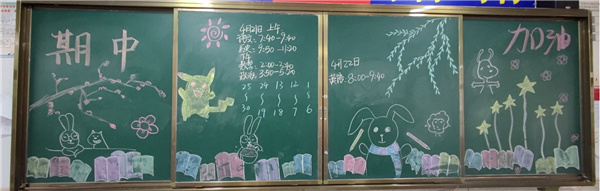 期中
4月21日 上午
语文：7:40-9:40
历史：9:50-11:20
下午
数学：2:00-3:40
政治：3:50-5:20
25 24 13 12 1
~ ~ ~ ~ ~
30 19 18 7 6
4月22日
英语：8:00-9:40
加油